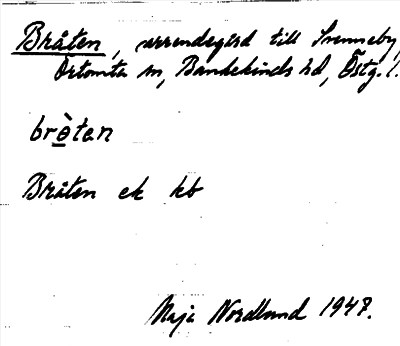 Bråten, arrendegård till Svenneby,
Örtomta sn, Bankekinds hd, Östg. l.
brò̲tan
Bråten ek kb
Maja Nordlund 1947.